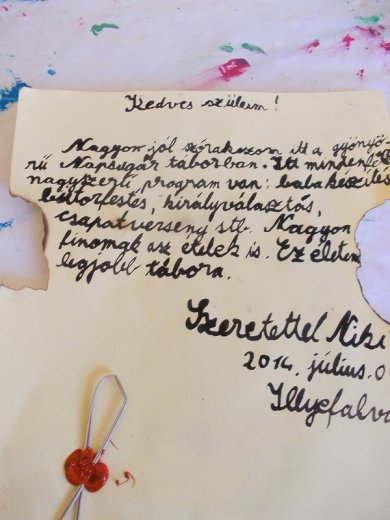 Kedves szüleim!
Nagyon jól szórakozom itt a gyönyö-
rű Napsugár táborban. Itt mindenféle
nagyszerű program van: babakészítés
bútorfestés, királyválasztós,
csapatverseny stb. Nagyon
finomak az ételek is. Ez életem
legjobb tábora.
Szeretettel Niki
2014. július. 0
Illyefalva